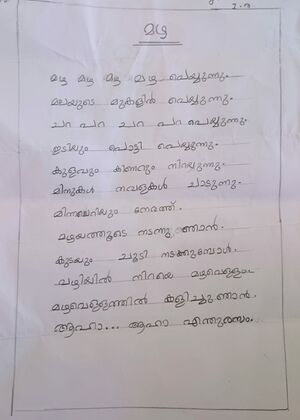 മഴ
മഴ മഴ മഴ മഴ പെയ്യുന്നു.
മലയുടെ മുകളിൽ പെയ്യുന്നു.
ചറ പറ ചറ പറ പെയ്യുന്നു.
ഇടിയും പൊട്ടി പെയ്യുന്നു.
കുളവും കിണറും നിറയുന്നു.
മീനുകൾ തവളകൾ ചാടുന്നു.
മിന്നലെറിയും നേരത്ത്.
മഴയത്തൂടെ നടന്നു ഞാൻ.
കുടയും ചൂടി നടക്കുമ്പോൾ.
വഴിയിൽ നിറയെ മഴവെള്ളം.
മഴവെള്ളത്തിൽ കളിച്ചു ഞാൻ.
ആഹാ... ആഹാ എന്തുരസം.